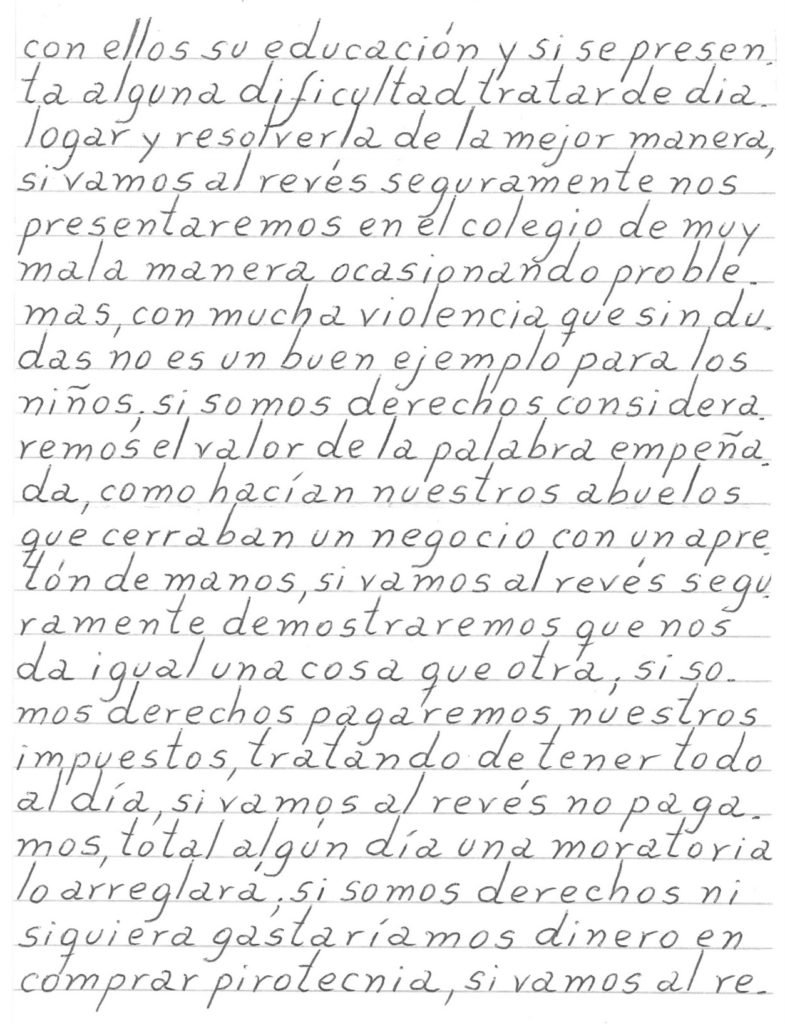 con ellos su educación y si se presen-
ta alguna dificultad tratar de dia-
logar y resolverla de la mejor manera,
si vamos al revés seguramente nos
presentaremos en el colegio de muy
mala manera ocasionando proble-
mas, con mucha violencia que sin du-
das no es un buen ejemplo para los
niños; si somos derechos considera-
remos el valor de la palabra empeña-
da, como hacían nuestros abuelos
que cerraban un negocio con un apre-
tón de manos, si vamos al revés segu-
ramente demostraremos que nos
da igual una cosa que otra; si so-
mos derechos pagaremos nuestros
impuestos, tratando de tener todo
al día, si vamos al revés no paga-
mos, total algún día una moratoria
lo arreglará; si somos derechos ni
siquiera gastaríamos dinero en
comprar pirotecnia, si vamos al re-